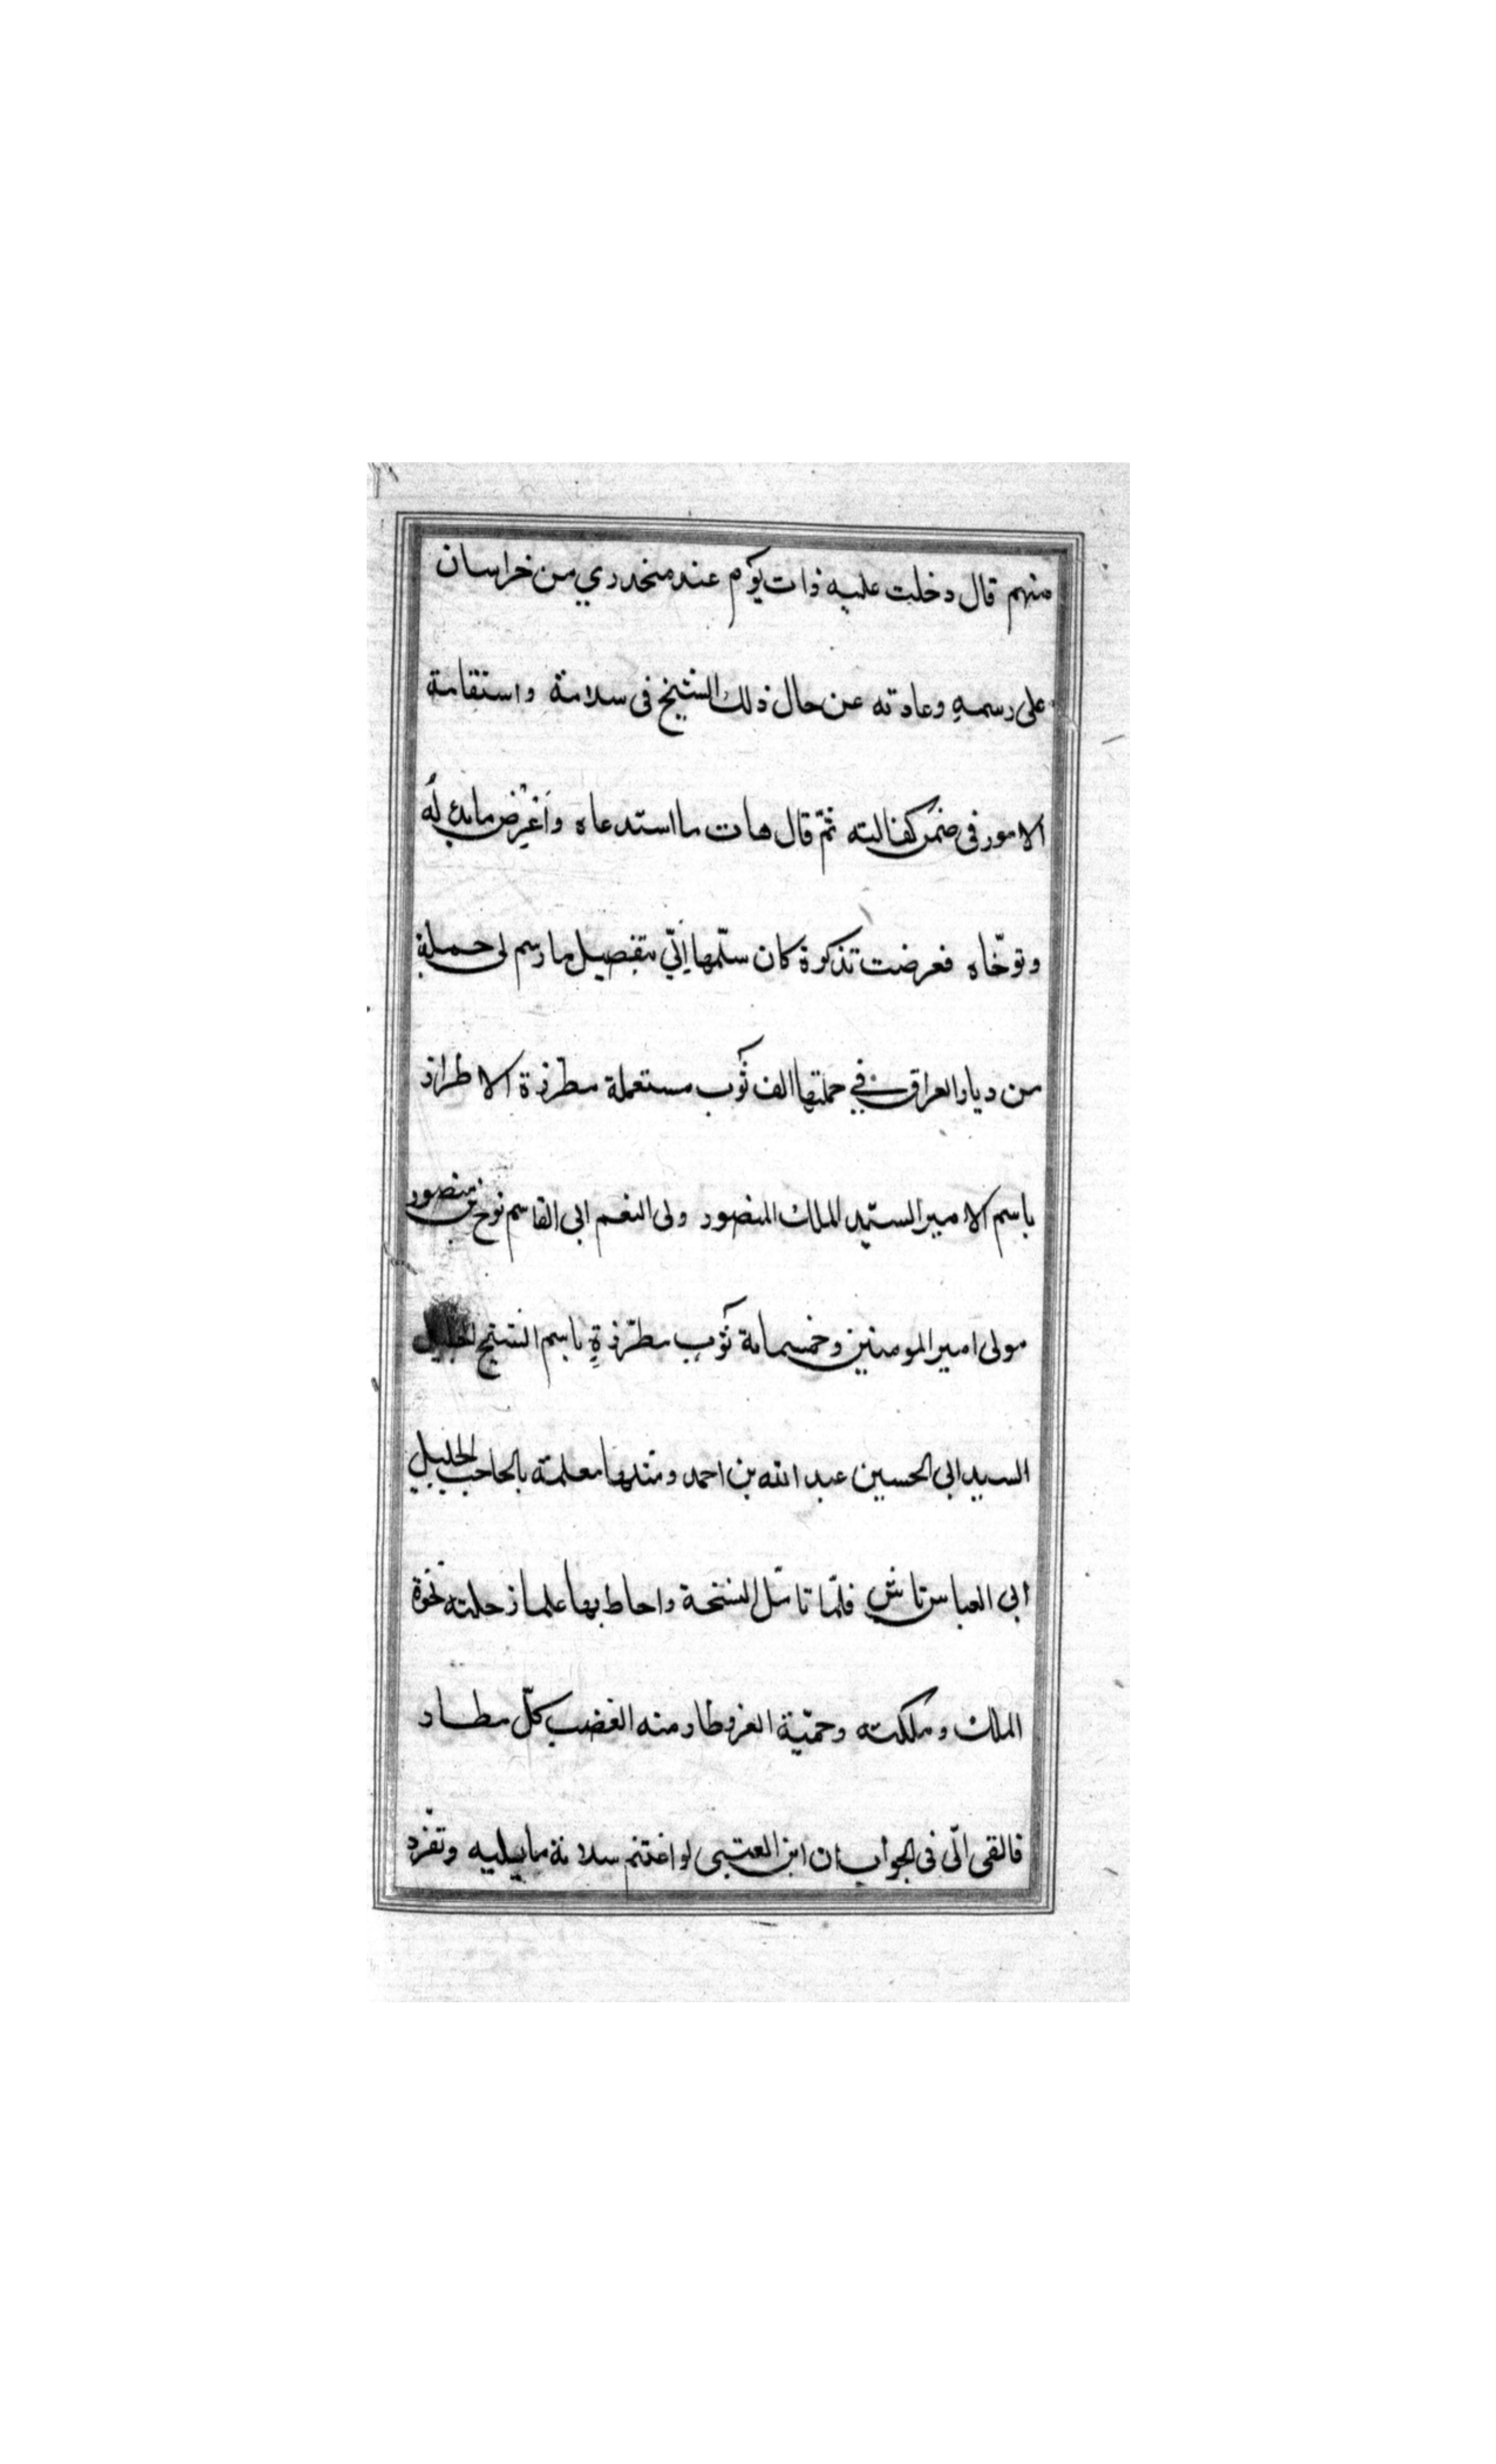 منهم قال دخلت عليه ذات يوم عند منحدري من خراسان
على رسمه وعادته عن حال ذلك الشيخ فى سلامة واستقامة
الامور فى ضمن كفالته ثمّ قال هات ما استدعاه واعرض ما له
وتوخّاه فعرضت تذكرة كان سلّمها اِليّ بتفصيل ما رسم لى حمله
من ديار العراق في جملتها الف ثوب مستعملة مطرزة الاطراز
باسم الامير السيّد الملك المنصور ولى النعم ابى القاسم نوح بن منصور
مولى امير المومنين وخمسماية ثوب مطرّزةٍ باسم الشيخ الجليل
السيد ابى الحسين عبد الله بن احمد ومثلها معلمة بالحاجب الجليل
ابى العباس تاش فلمّا تامّل النسخة واحاط بها علما زحلته نخوة
الملك وملكته وحميّة العز وطار منه الغضب كلّ مطار
فالقى الىّ فى الجواب ان ابن العتبى لو اغتنم سلامة ما يليه وتفرّد